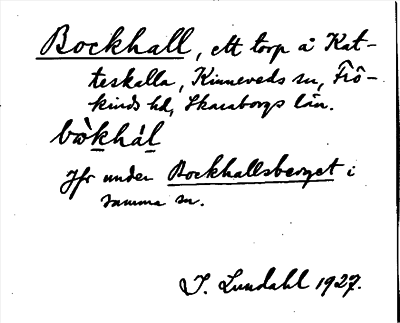 Bockhall, ett torp å Kat-
teskalla, Kinneveds sn, Frö-
kinds hd, Skaraborgs län.
bòkhál
Jfr under Bockhallsberget i
samma sn.
I. Lundahl 1927.